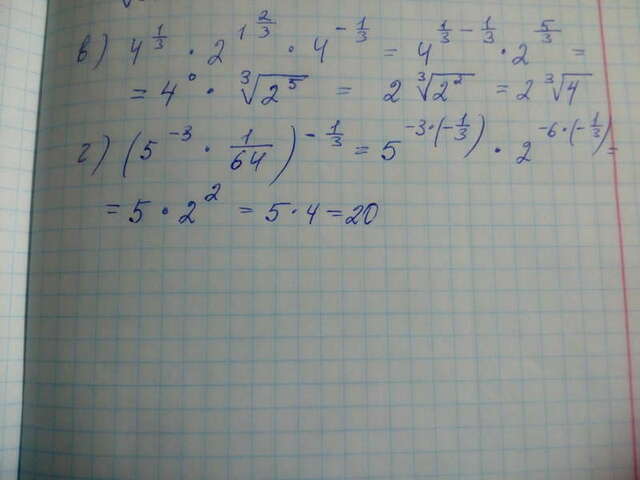 в) 4^{1/3} · 2^{1 2/3} · 4^{-1/3} = 4^{1/3 - 1/3} · 2^{5/3} =
= 4^0 · ∛(2^5) = 2 ∛(2^2) = 2 ∛4
г) (5^{-3} · 1/64)^{-1/3} = 5^{-3·(-1/3)} · 2^{-6·(-1/3)} =
= 5 · 2^2 = 5 · 4 = 20